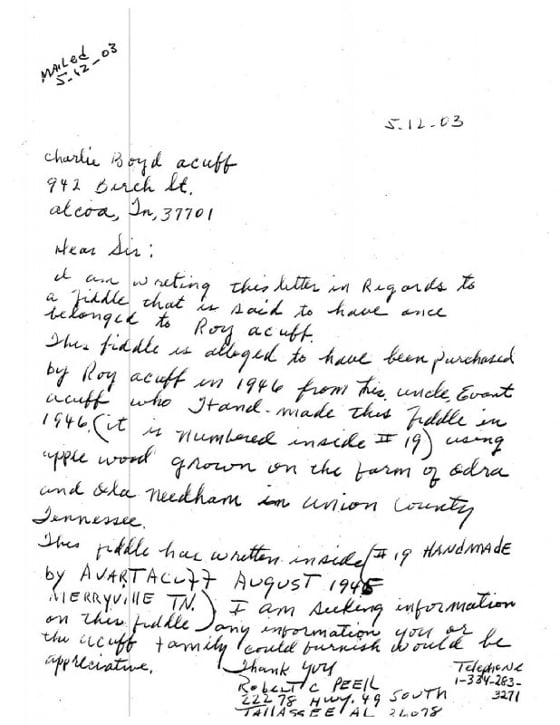 MAILEd
5-12-03
5-12-03
Charlie Boyd acuff
942 Birch St.
alcoa, Tn, 37701
Dear Sir:
I am writing this letter in Regards to
a fiddle that is said to have once
belonged to Roy acuff.
This fiddle is alleged to have been purchased
by Roy acuff in 1946 from his, uncle, Evart
acuff who Hand-made this fiddle in
1946. (it is numbered inside # 19) using
apple wood grown on the farm of Odra
and Oda Needham in Union County
Tennessee.
This fiddle has written inside (# 19 HANDMADE
by AVARTACUFF AUGUST 1945
MERRYVILLE TN.) I am seeking information
on this fiddle) any information you or
the acuff family could furnish would be
appreciative.
Thank you
Robert C PEEK
22278 Hwy. 49 SOUTH
TALLASSEE AL 36078
Telephone
1-334-283-
3271